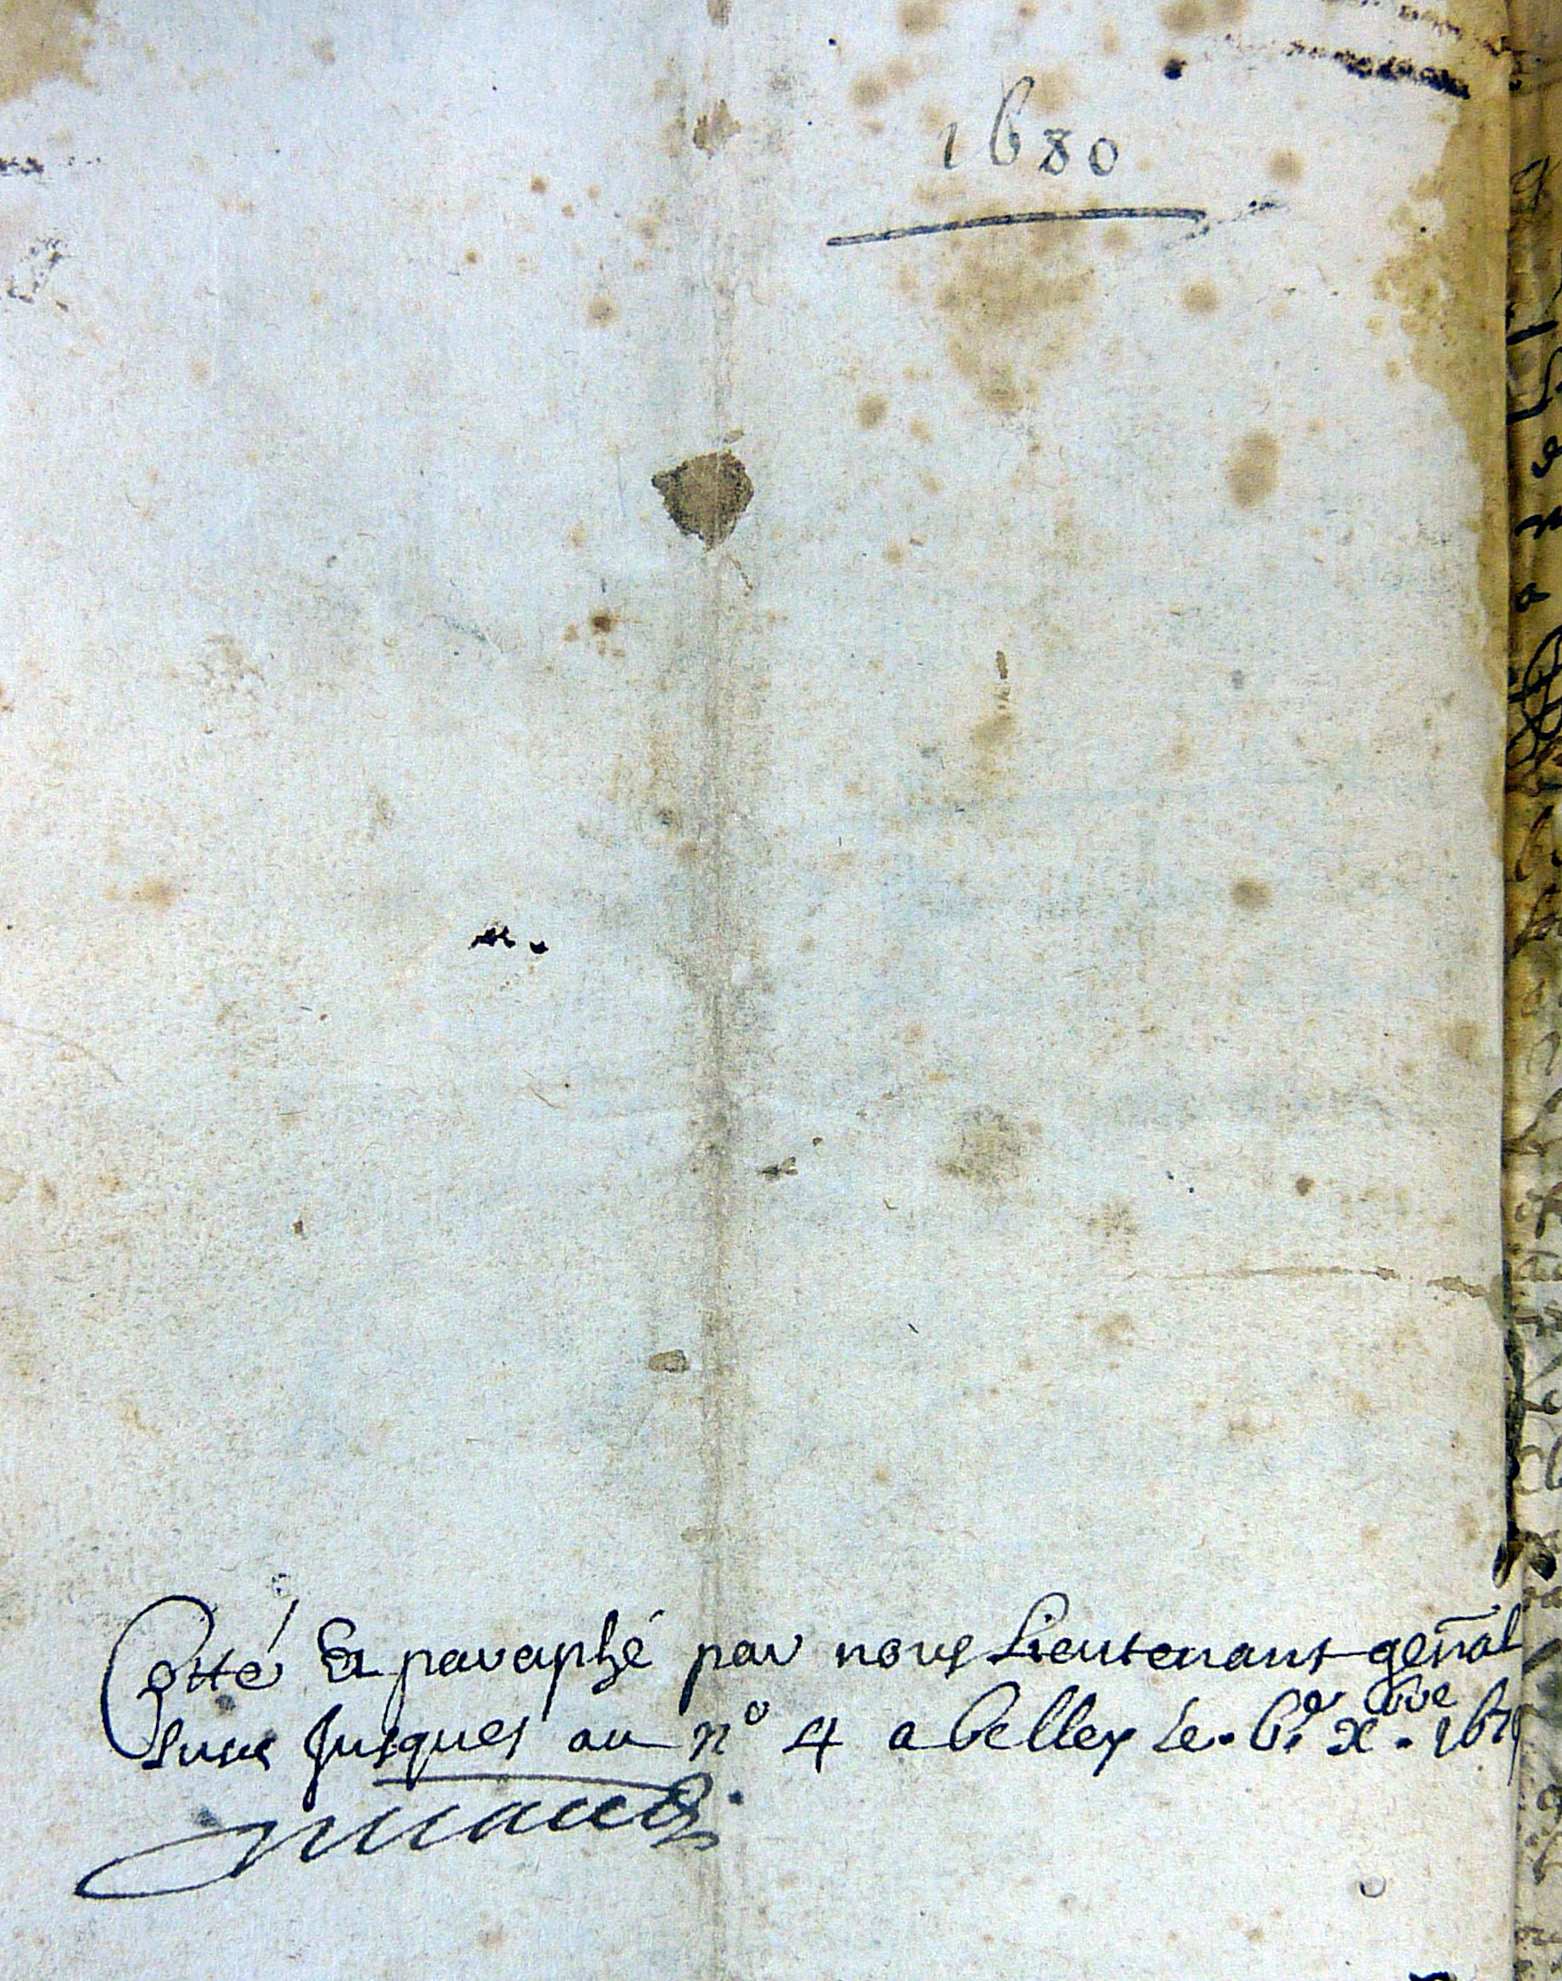 1680
Cotté Et paraphé par nous Lieutenant gen̄al
Jusques au n° 4 a belley Le. 6.e x.bre 167